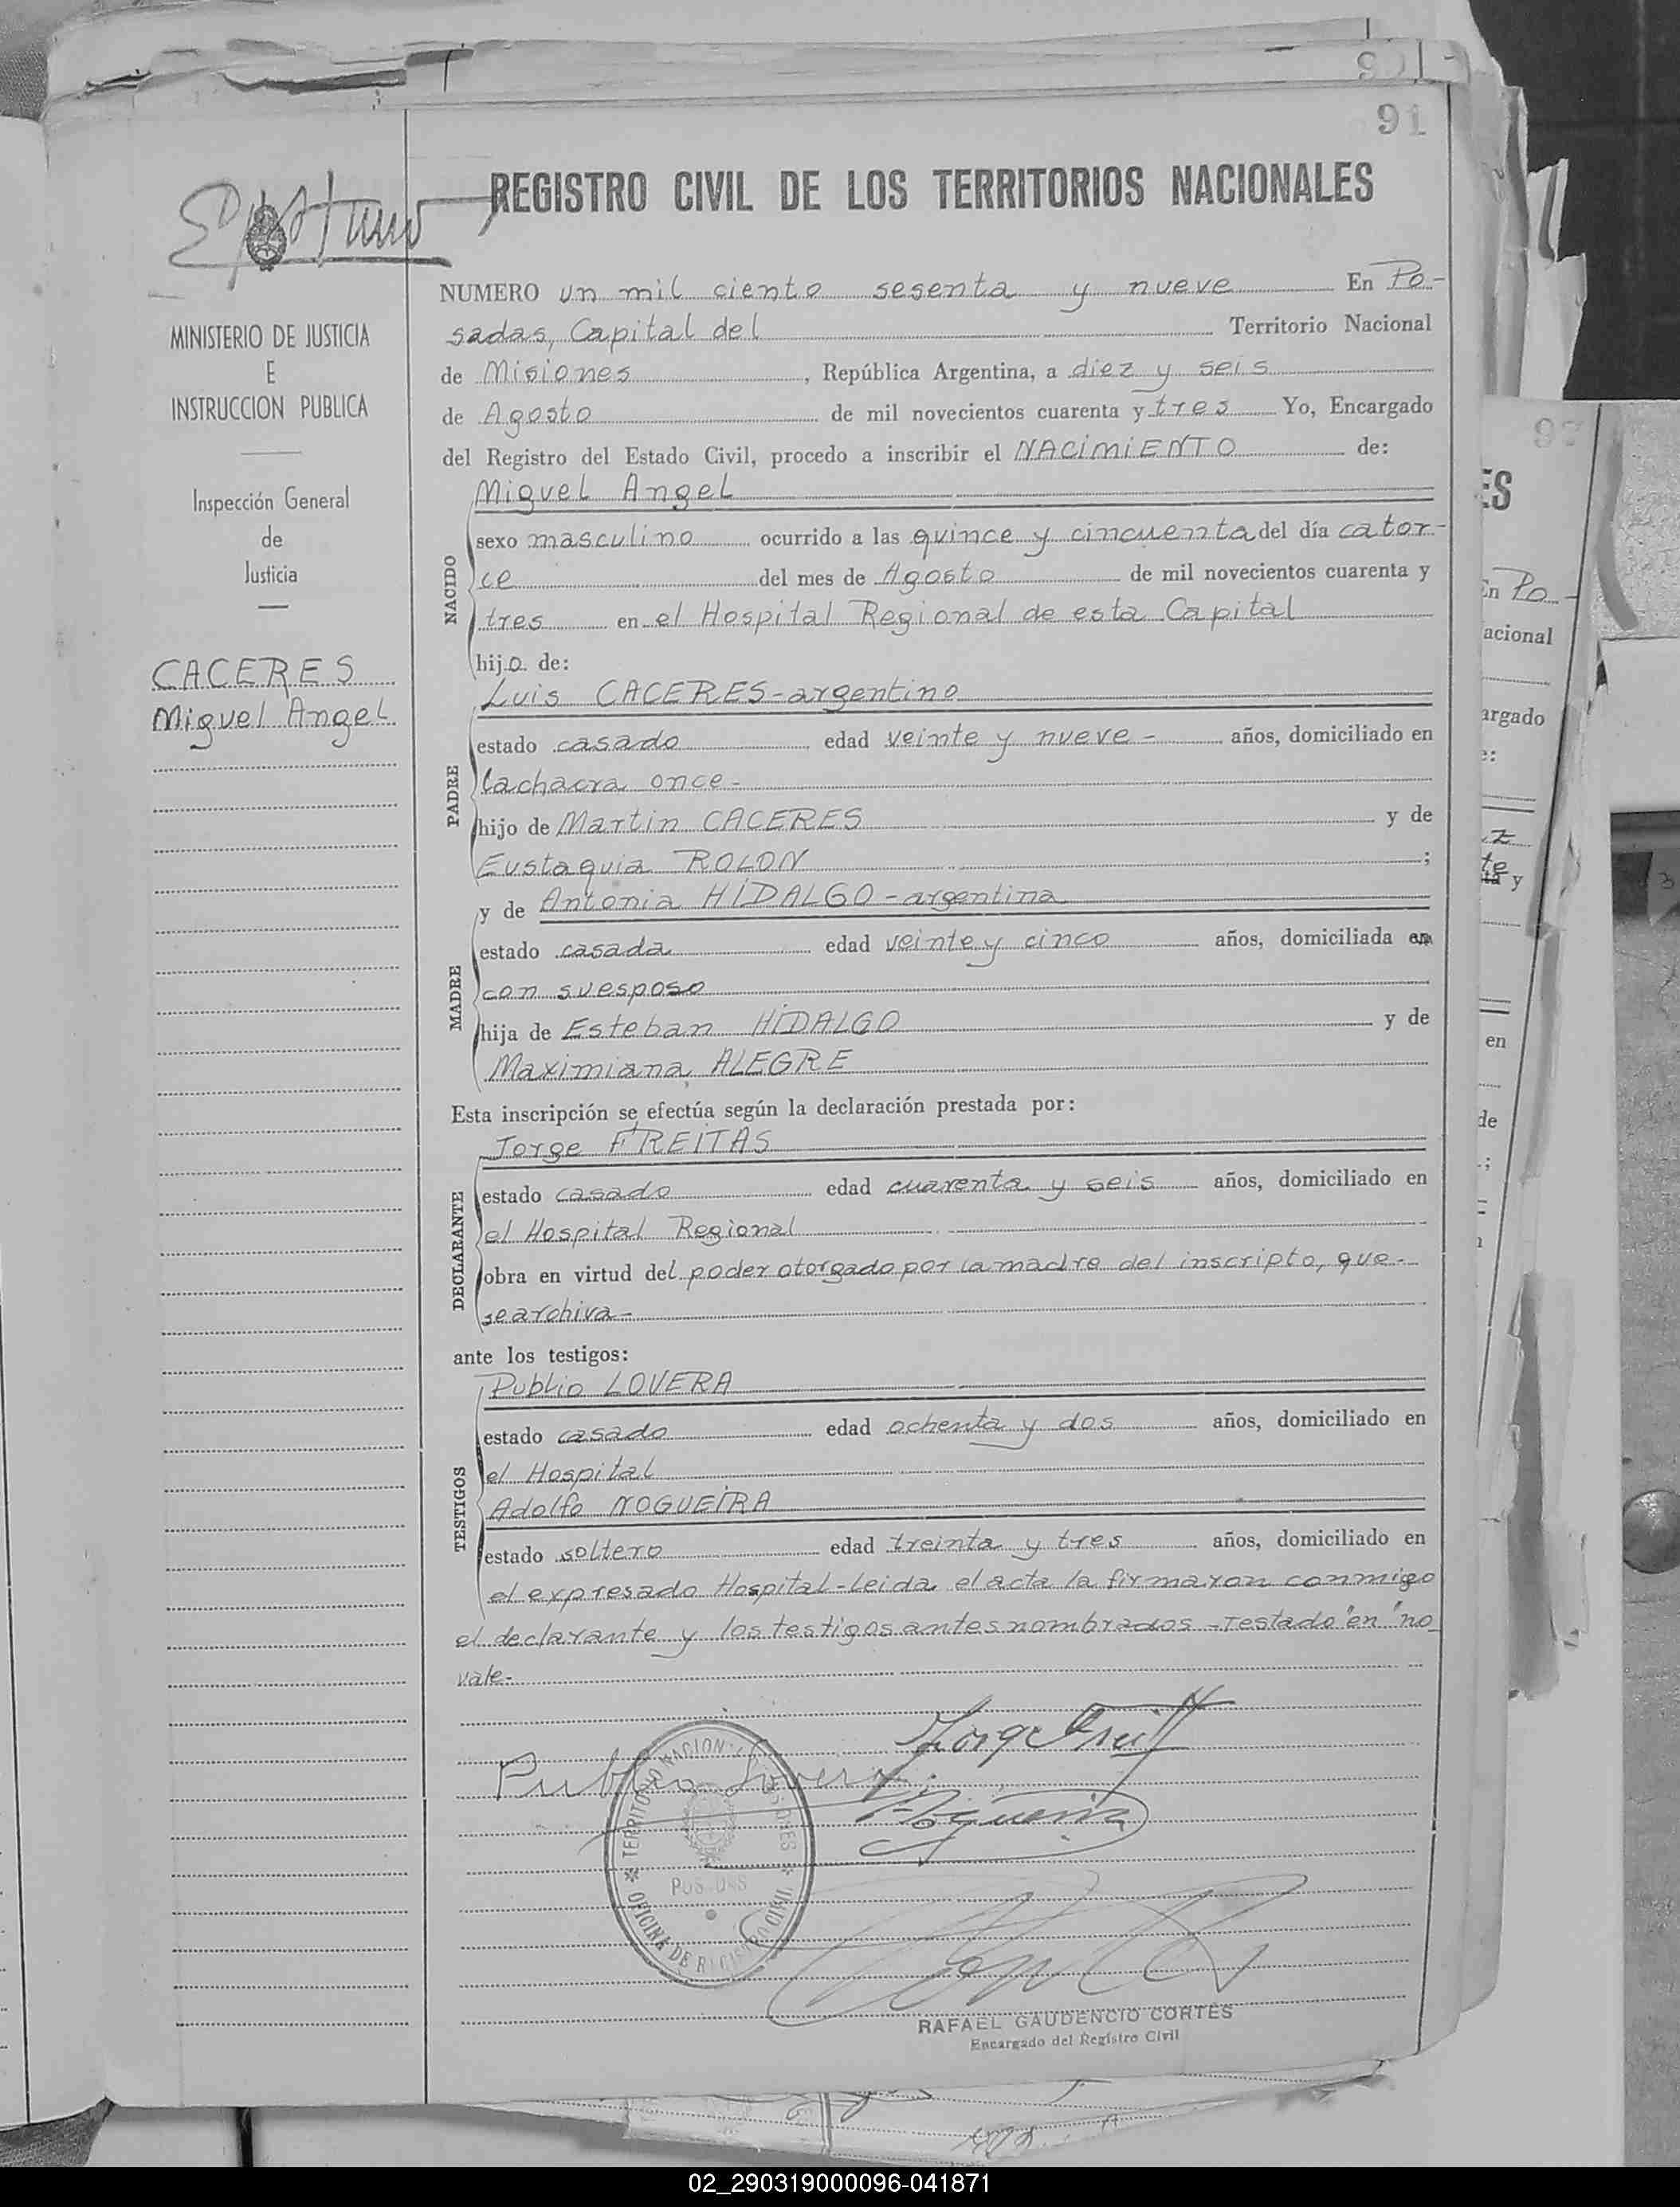 91
REGISTRO CIVIL DE LOS TERRITORIOS NACIONALES
NUMERO un mil ciento sesenta y nueve En Po-
sadas, Capital del Territorio Nacional
de Misiones, República Argentina, a diez y seis
de Agosto de mil novecientos cuarenta y tres Yo, Encargado
del Registro del Estado Civil, procedo a inscribir el NACIMIENTO de:
Miguel Angel
NACIDO
sexo masculino ocurrido a las quince y cincuenta del día cator-
ce del mes de Agosto de mil novecientos cuarenta y
tres en el Hospital Regional de esta Capital
hijo de:
Luis CACERES-argentino
PADRE
estado casado edad veinte y nueve - años, domiciliado en
la chacra once-
hijo de Martin CACERES y de
Eustaquia ROLON ;
y de Antonia HIDALGO-argentina
MADRE
estado casada edad veinte y cinco años, domiciliada en
con su esposo
hija de Esteban HIDALGO y de
Maximiana ALEGRE
Esta inscripción se efectúa según la declaración prestada por:
Jorge FREITAS
DECLARANTE
estado casado edad cuarenta y seis años, domiciliado en
el Hospital Regional
obra en virtud del poder otorgado por la madre del inscripto, que-
se archiva-
ante los testigos:
Publio LOVERA
TESTIGOS
estado casado edad ochenta y dos años, domiciliado en
el Hospital
Adolfo NOGUEIRA
estado soltero edad treinta y tres años, domiciliado en
el expresado Hospital-Leida el acta la firmaron conmigo
el declarante y los testigos antes nombrados-Testado "en" no
vale-
Publio Lovera
TERRITORIO NACIONAL DE MISIONES
POSADAS
OFICINA DE REGISTRO CIVIL
RAFAEL GAUDENCIO CORTES
Encargado del Registro Civil
MINISTERIO DE JUSTICIA
E
INSTRUCCION PUBLICA
Inspección General
de
Justicia
CACERES
Miguel Angel
ES
En Po-
acional
argado
e:
y
en
de
02_290319000096-041871